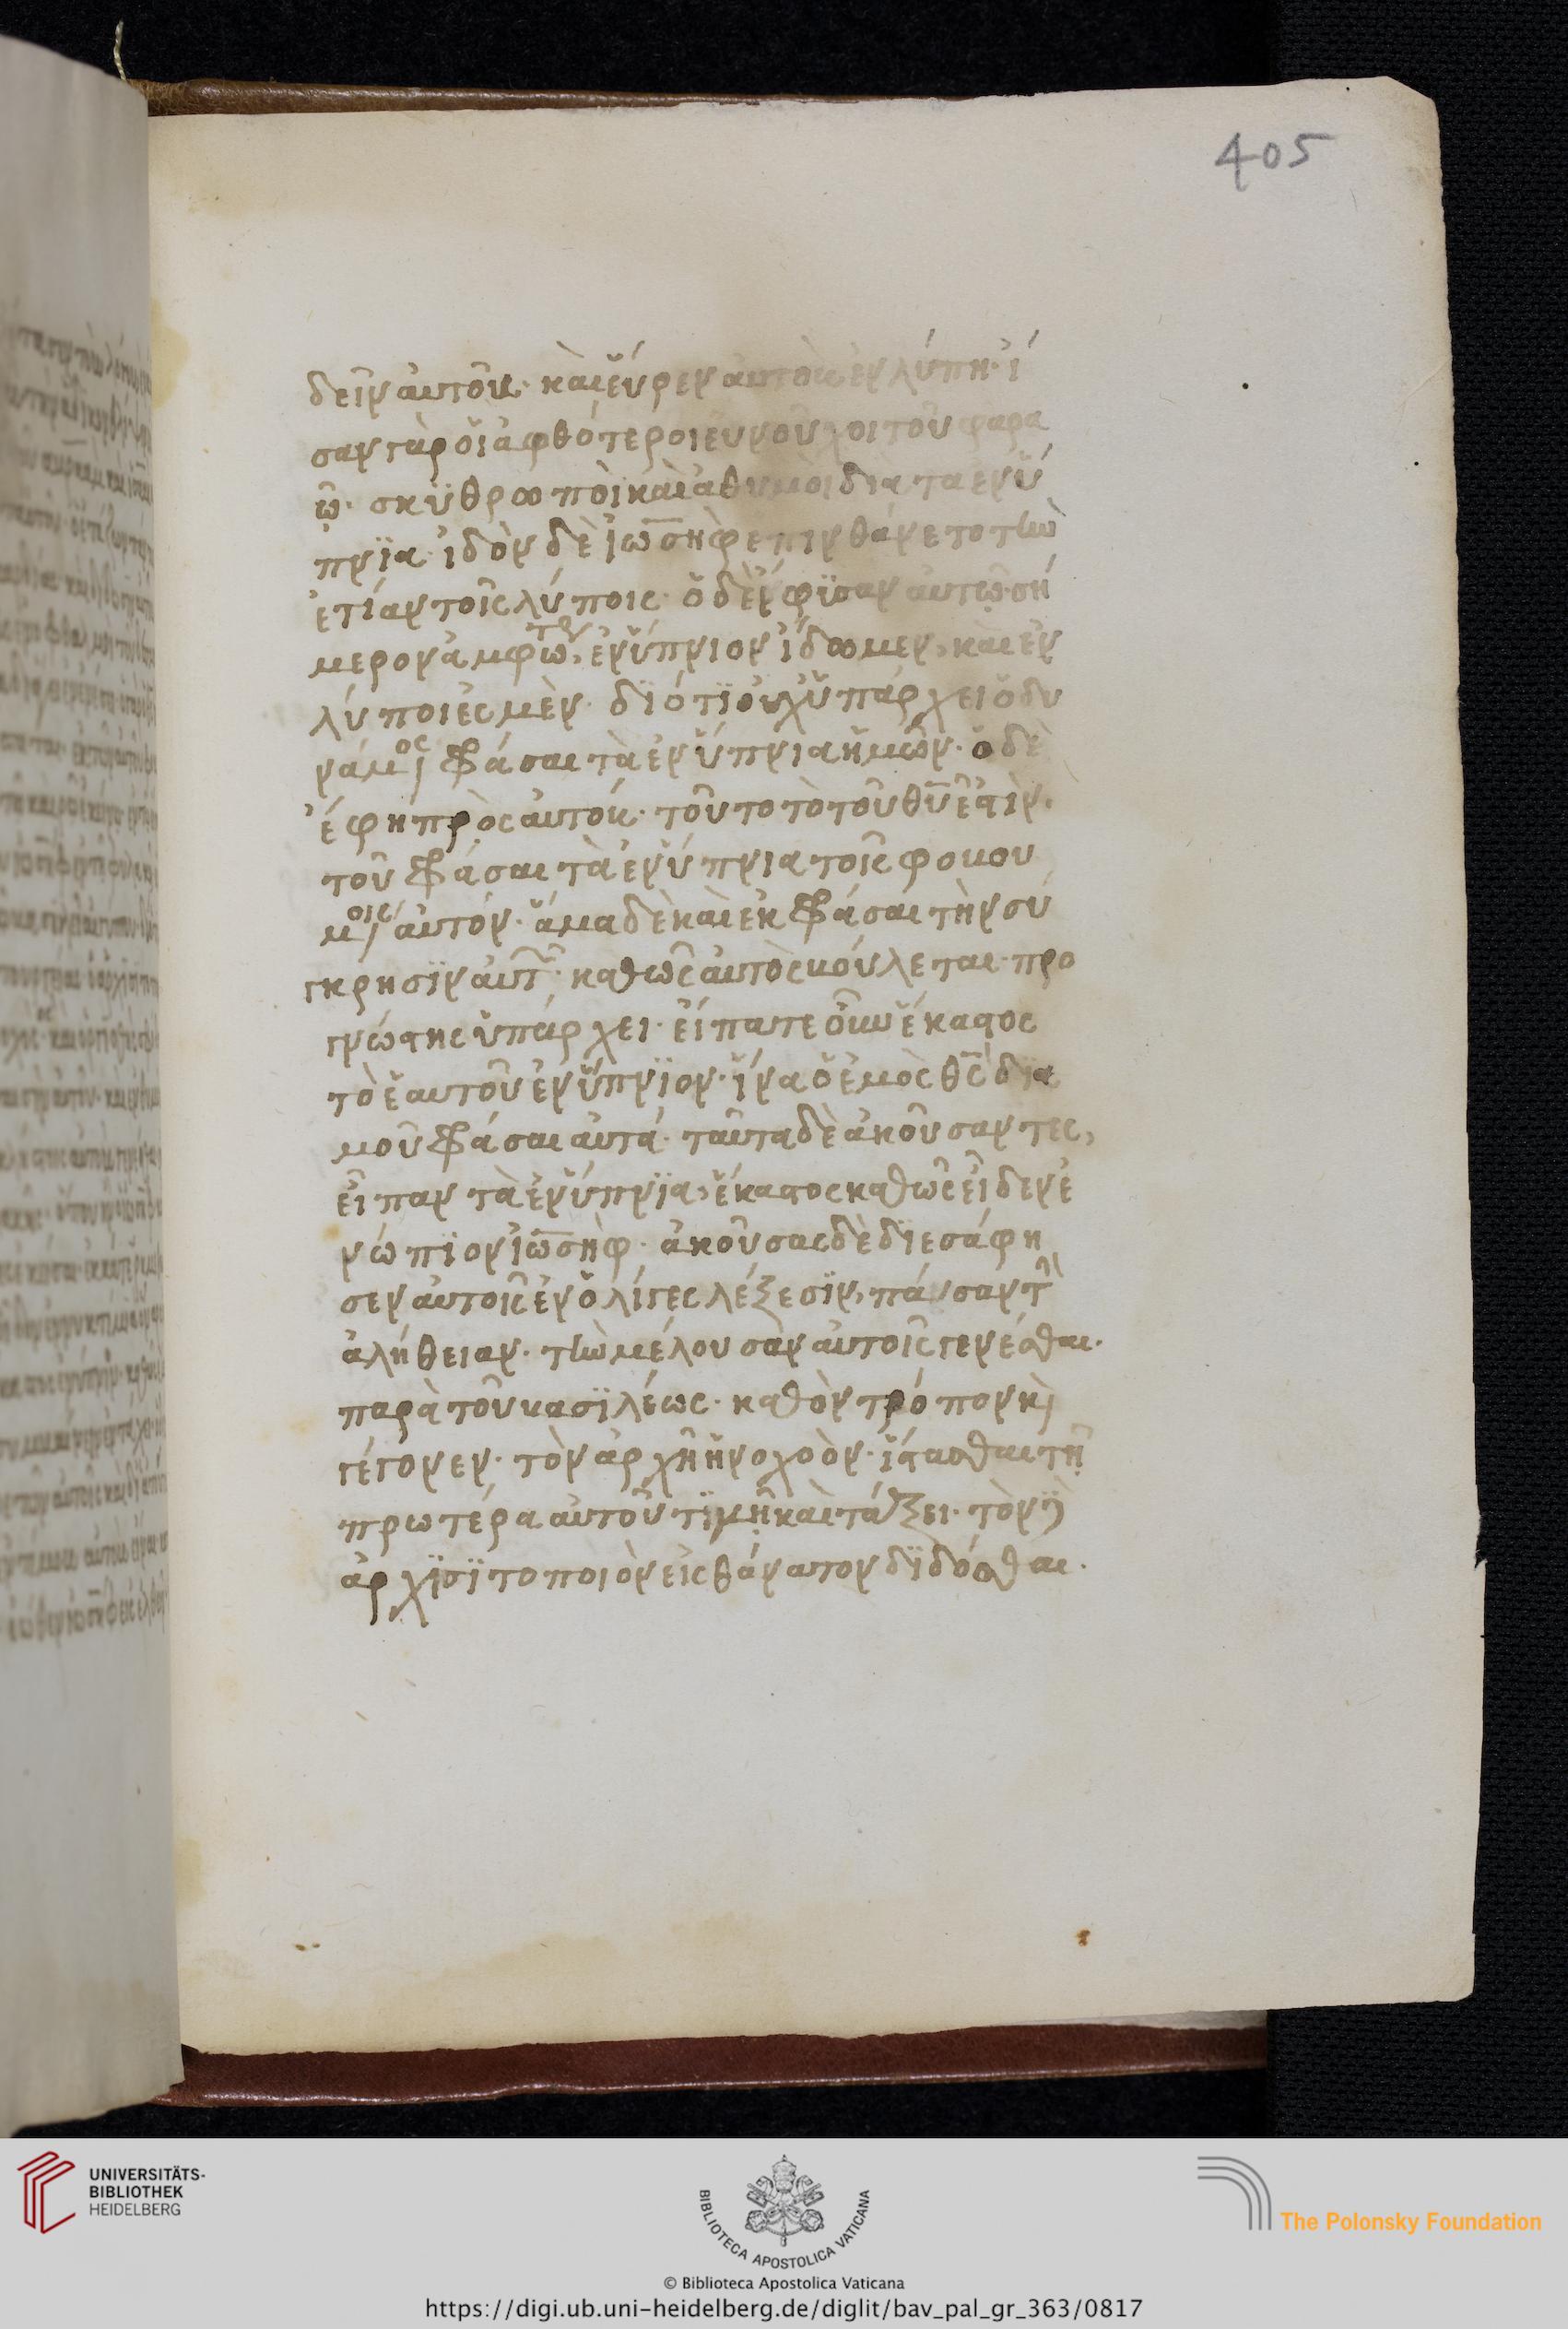 405
δεῖν αὐτοῦς· καὶ εὕρεν αὐτοὺς ἐν λύπη· ἶ
σαν γὰρ οἱ ἀφθότεροι εὐνοῦχοι τοῦ φαρα
ῶ· σκϋθρωποὶ καὶ ἀθυμοὶ δια τα ἐνὕ
πνϊα· ἰδὸν δὲ ἰωσὴφ ἐπινθάνετο τὴν
ἐτίαν τοῖς λύποις· ὅ δὲ ἔφϊσαν αὐτῶ· σή
μερον ἀμφωτῶν, ἐνὕπνιον ἴδωμεν, καὶ ἐν
λύποι ἐσμὲν· δϊότϊ οὐχ ὕπάρχει ὅ δυ
νάμ̣ος φράσαι τὰ ἐνὕπνια ἥμῶν· ὅ δὲ
ἔφη πρὸς αὐτούς· τοῦτο τὸ τοῦ θῦ ἐστὶν·
τοῦ φράσαι τὰ ἐνὕπνια τοῖς φοβου
μοις αὐτόν· ἅμα δὲ καὶ ἐκφράσαι τὴν σύ
γκρησϊν αὐτῶν· καθὼς αὐτὸς βούλεται· προ
γνώστης ὕπάρχει· εἴπατε οὖν ἕκαστος
τὸ ἑαυτοῦ ἐνὕπνϊον· ἵνα ὅ ἐμὸς θς δϊα
μοῦ φράσαι αὐτά· ταῦτα δὲ ἀκοῦσαντες,
εἶπαν τὰ ἐνὕπνϊα, ἕκαστος καθὼς εἶδεν ἐ
νώπϊον ἰωσὴφ· ἀκοῦσας δὲ δϊεσάφη
σεν αὐτοῖς ἐν ὅλίγες λέξεσϊν, πάνσαν τὴν
ἀλήθειαν· τὴν μέλουσαν αὐτοῖς γενέσθαι·
παρὰ τοῦ βασϊλέως· καθὸν τρόπον κὶ
γέγονεν· τὸν ἀρχῆ ἥνοχοὸν· ἵστασθαι τῆ
πρωτέρα αὐτοῦ τϊμῆ καὶ τάξει· τὸν δὲ
ἀρχϊσϊτοποιὸν εἰς θάνατον δϊδόσθαι·
UNIVERSITÄTS-
BIBLIOTHEK
HEIDELBERG
BIBLIOTECA APOSTOLICA VATICANA
The Polonsky Foundation
© Biblioteca Apostolica Vaticana
https://digi.ub.uni-heidelberg.de/diglit/bav_pal_gr_363/0817